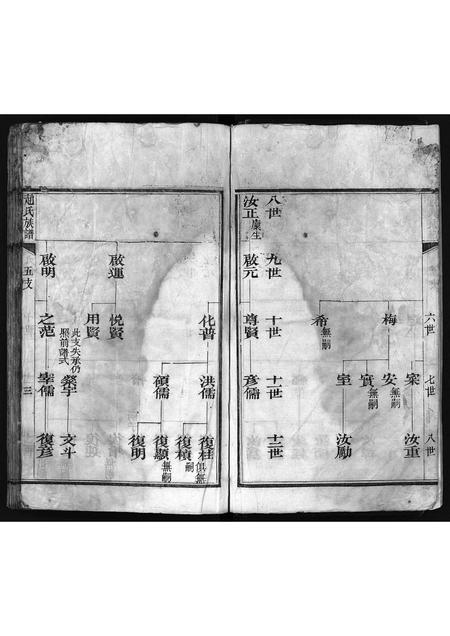 六世
梅
希 無嗣
七世
寀
安 無嗣
寘 無嗣
室
八世
汝重
汝勵
八世
汝正 廩生
九世
啟元
十世
尊賢
十一世
彥儒
十二世
化普
洪儒
碩儒
復桂 俱無
復楨 嗣
復顯 無嗣
復明
啟運
悅賢
用賢
啟明
之范
此支失承仍
照前譜式
榮宇
宰儒
文斗
復彥
趙氏族譜
五支
三